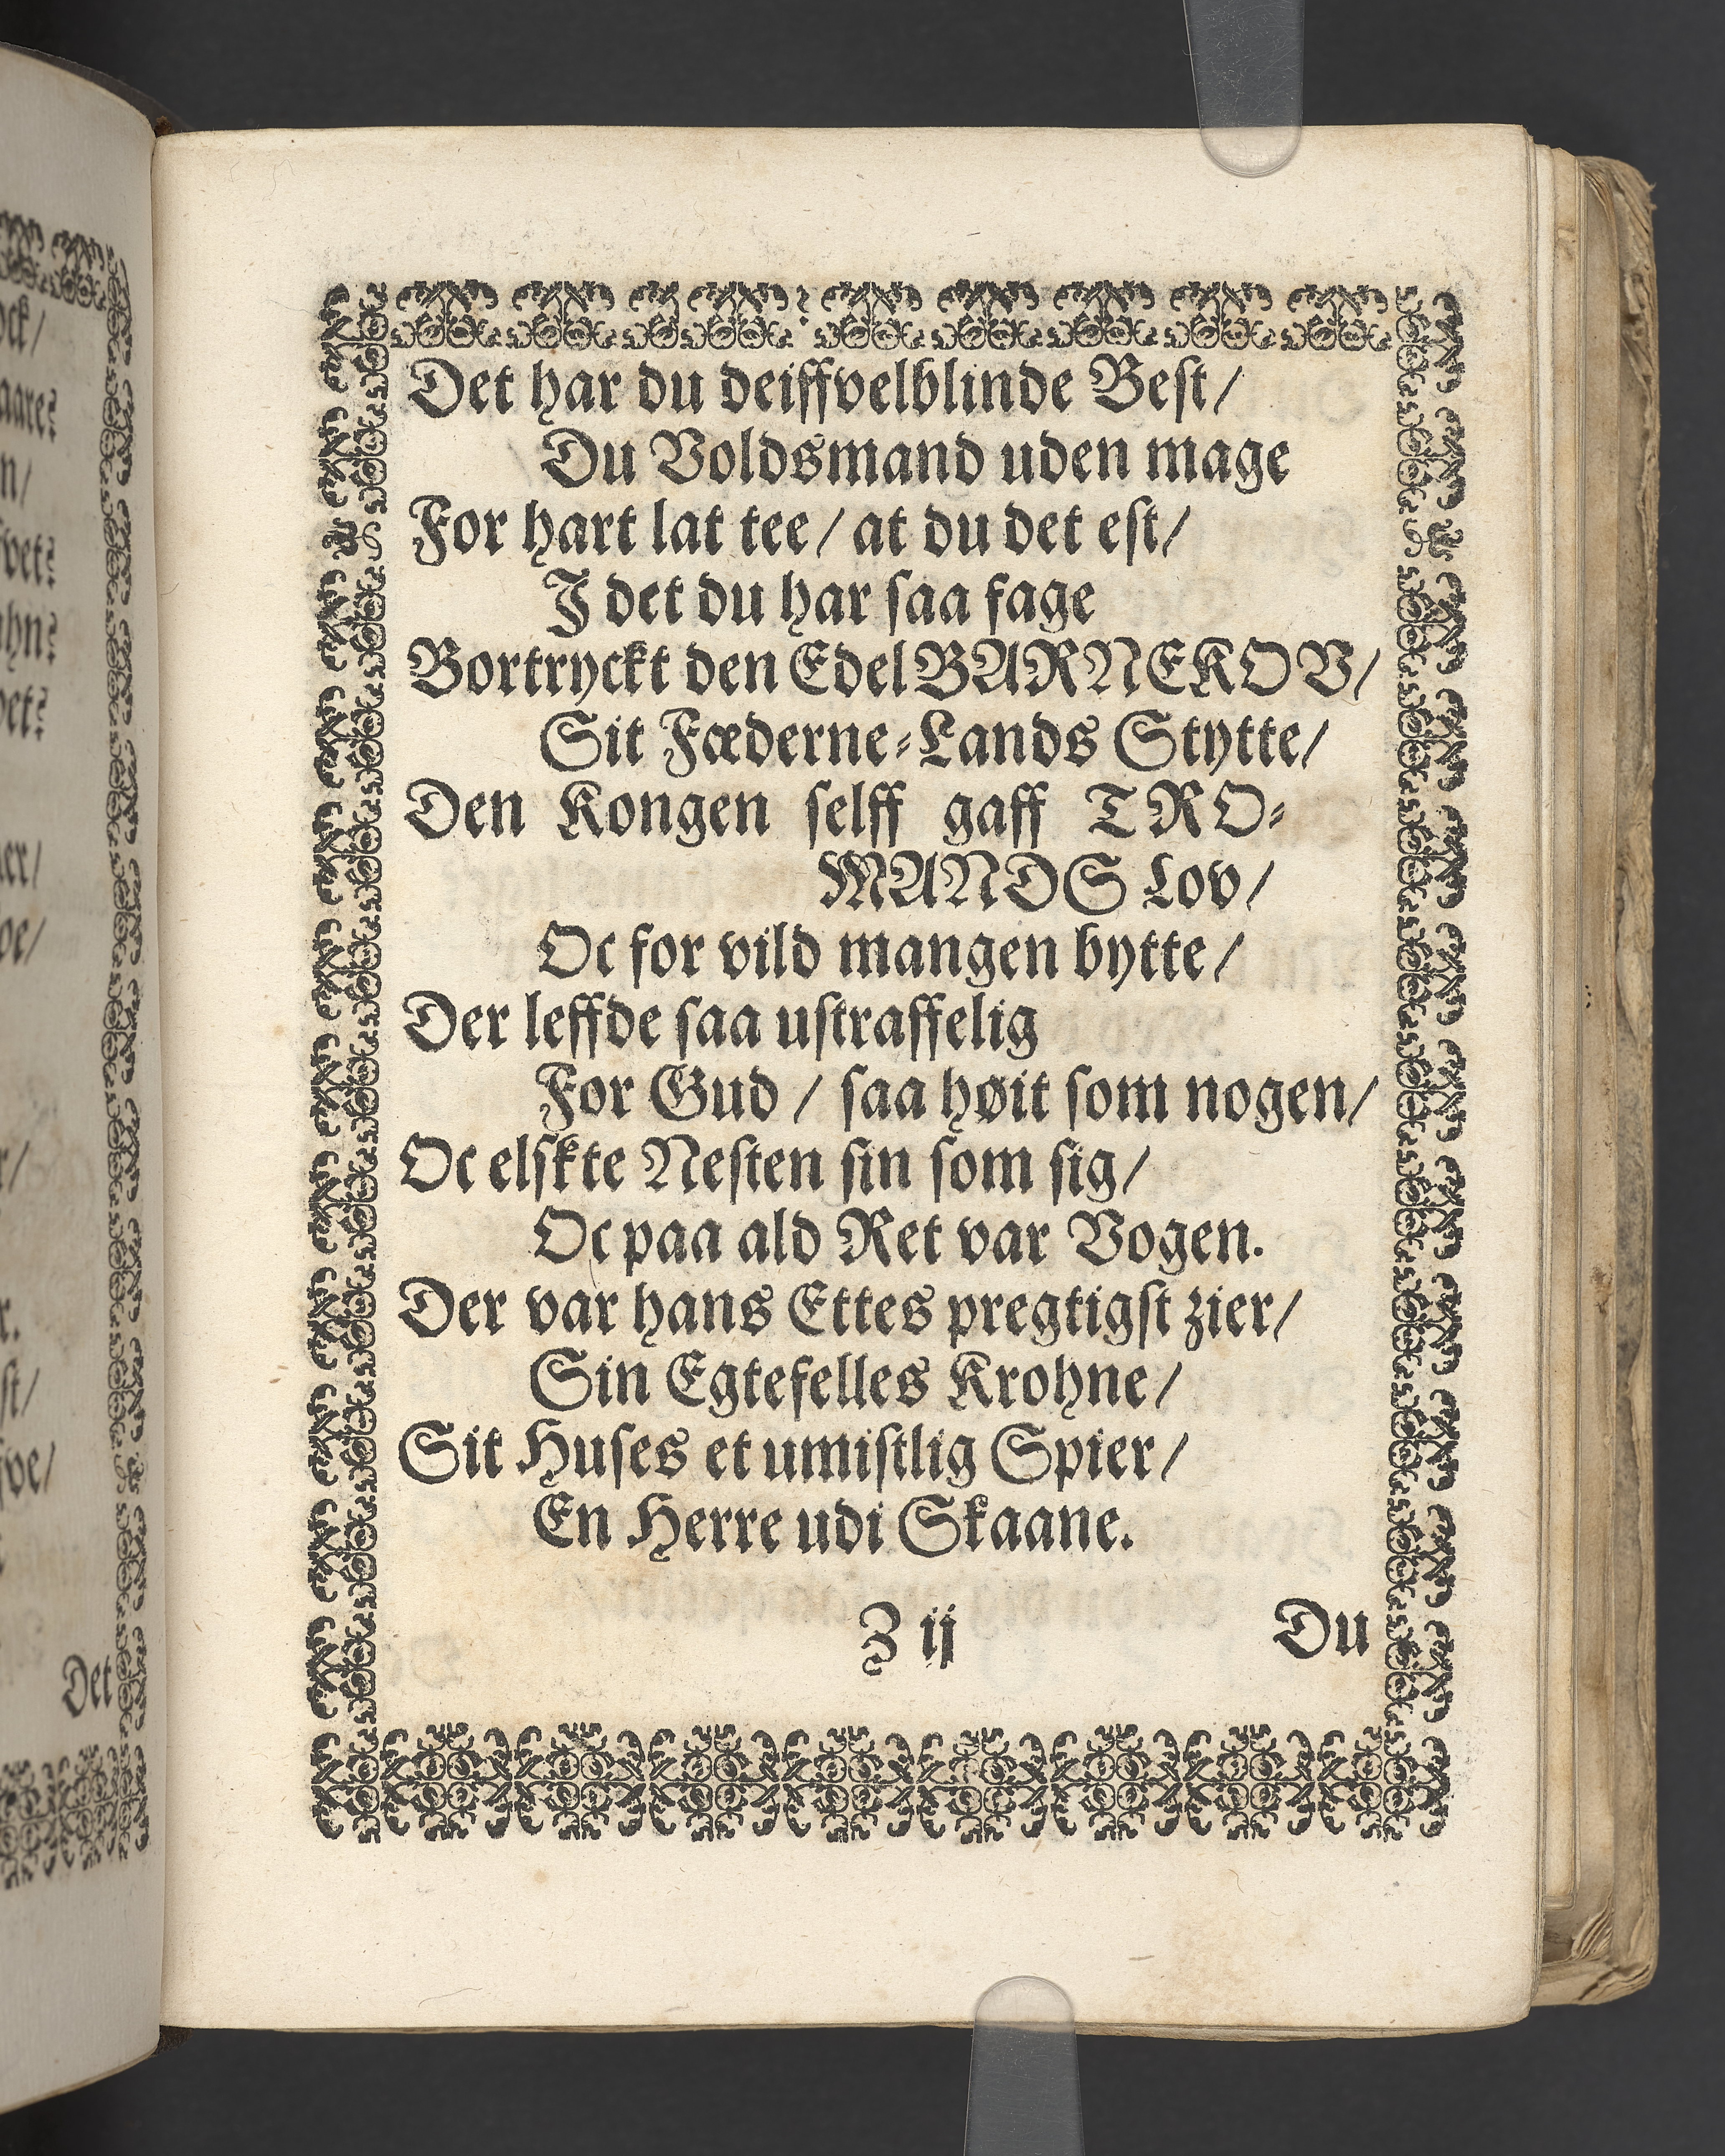 Det har du deiffvelblinde Best/
Du Voldsmand uden mage
For hart lat tee/ at du det est/
I det du har saa fage
Bortryckt den Edel BARNEKOV/
Sit Fæderne-Lands Stytte/
Den Kongen selff gaff TRO-
MANDS Lov/
Oc for vild mangen bytte/
Der leffde saa ustraffelig
For Gud / saa høit som nogen/
Oc elskte Nesten sin som sig/
Oc paa ald Ret var Vogen.
Der var hans Ettes pregtigst zier/
Sin Egtefelles Krohne/
Sit Huses et umistlig Spier/
En Herre udi Skaane.
Z ij
Du
Det